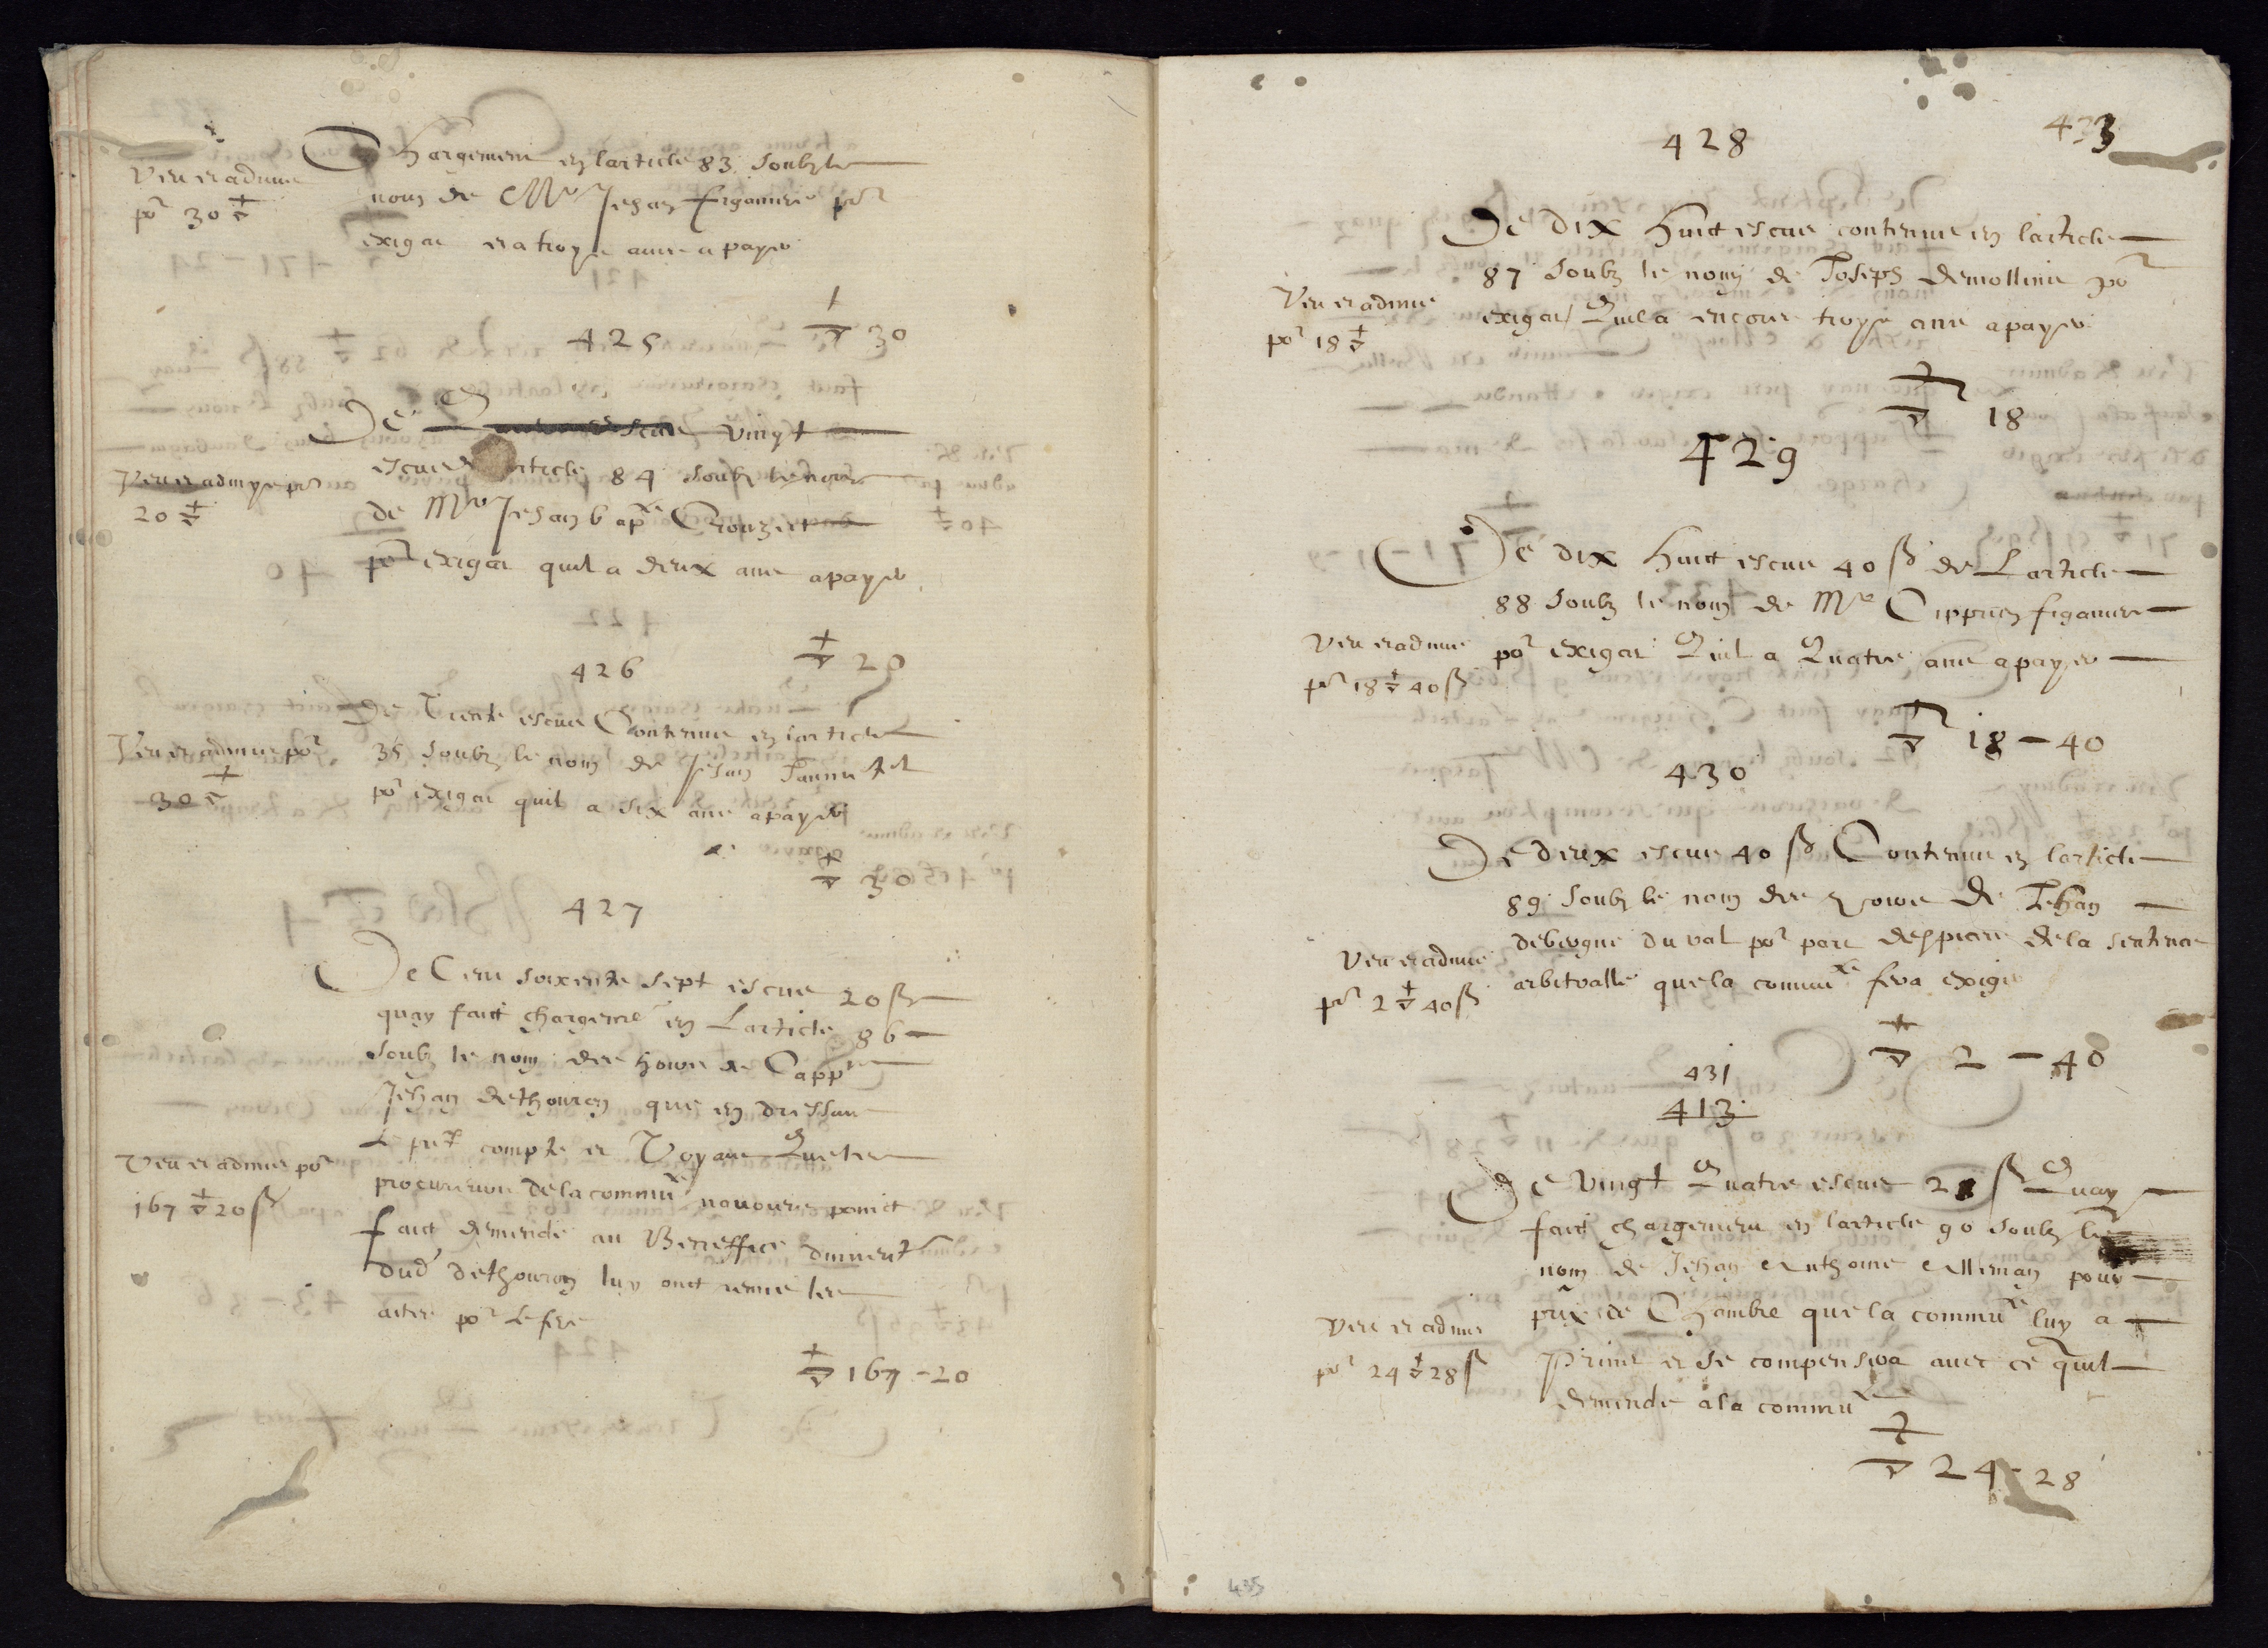 Chargement en larticle 83 soubz le
nom de Me Jehan figaniere por
exigat et a troys ans a payer
Veu et admis
por 30
30
425
De vingt
escus de article 84 soubz le nom
de Me Jehan bapte Crouzet
por exigat quil a deux ans a payer
Veu et admys por
20
20
426
De Trente escus Contenus en larticle
35 soubz le nom de Jehan
por exigat quil a six ans a payer
Veu et admis por
30
30
427
De Cent soixente sept escus 20 ß
quay faict chargemt en Larticle 86
soubz le nom des hoirs de Cappne
Jehan dethouron que en dressant
Le put compte et Voyant Que les
procureurs de la commute nauoient poinct
faict demende au Beneffice dinventre
dud dethouron luy ont remis les
actes por Le fere
Veu et admis por
167 20 ß
167 - 20
433
428
De dix huict escus contenus en larticle
87 soubz le nom de Joseph demollins por
exigat Quil a encores troys ans a payer
Veu et admis
por 18
18
429
De dix huict escus 40 ß de Larticle
88 soubz le nom de Me Cipprien figaniere
por exigat Quil a Quatre ans a payer
Veu et admis
por 18 40 ß
18 - 40
430
De deux escus 40 ß Contenus en larticle
89 soubz le nom des hoirs de Jehan
debergue du val por part despians de la sentence
arbitralle que la commute fera exiger
Veu et admis
por 2 40 ß
2 - 40
431
413
De vingt Quatre escus 28 ß Quay
faict chargement en larticle 90 soubz le
nom de Jehan Anthoine Alleman pour
prix de Chambre que la commute luy a
Prins et se compensera avec ce quil
demende a la commute
Veu et admis
por 24 28 ß
24 - 28
435